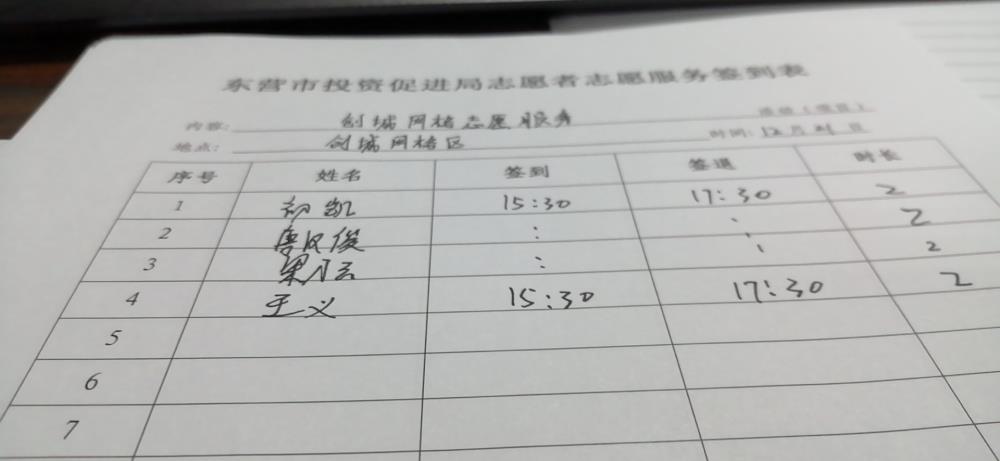 东营市投资促进局志愿者志愿服务签到表
内容: 创城网格志愿服务 活动(项目)
地点: 创城网格区 时间: 12月 日
序号 姓名 签到 签退 时长
1 初凯 15:30 17:30 2
2 : : 2
3 : : 2
4 王义 15:30 17:30 2
5
6
7